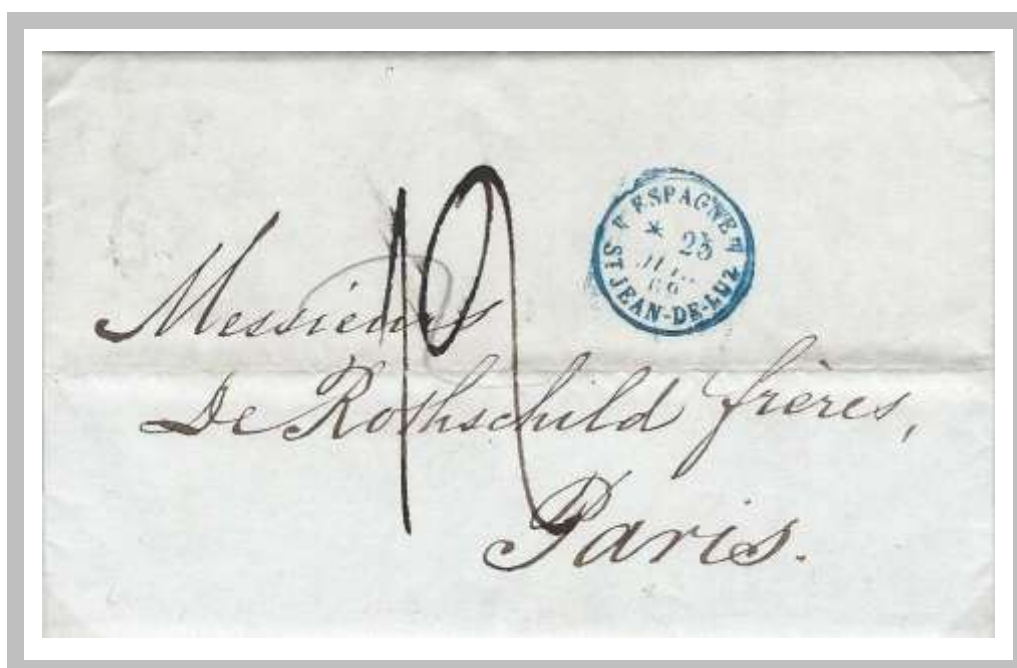 ESPAGNE
ST JEAN-DE-LUZ
12
Messieurs
De Rothschild frères,
Paris.